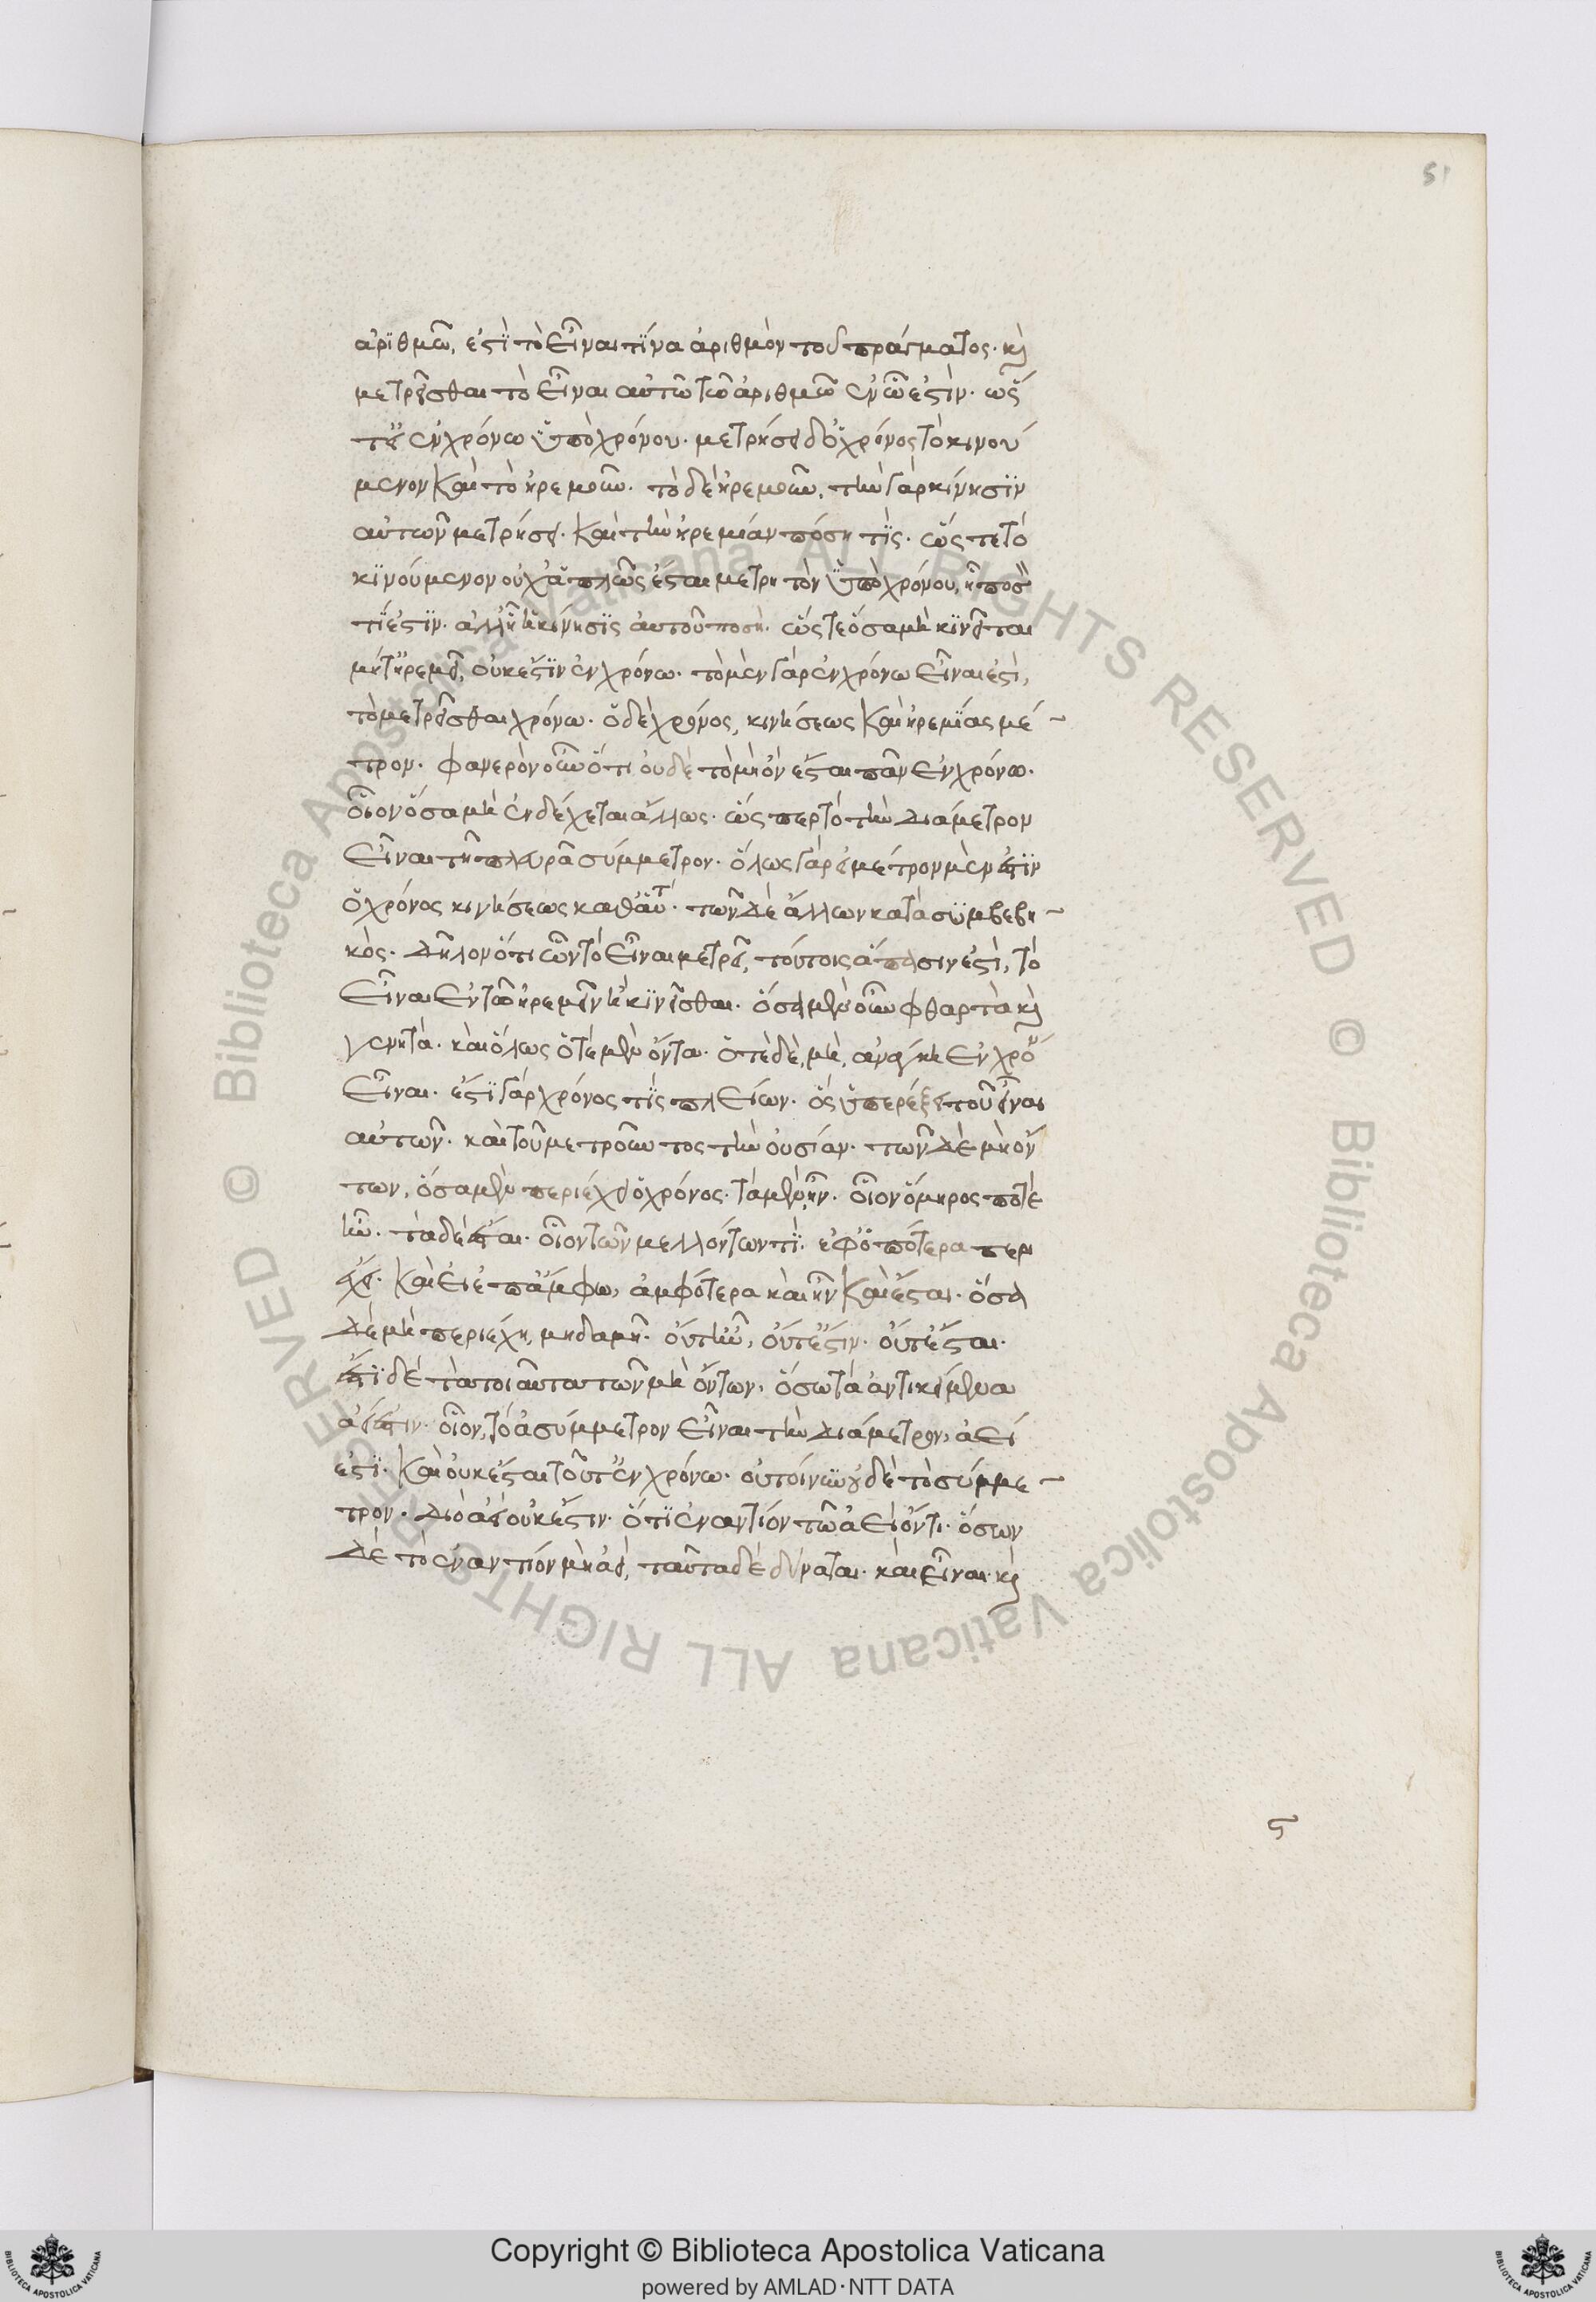 51
ἀριθμῶ, ἐστὶ τὸ εἶναι τινα ἀριθμὸν τοῦ πράγματος· κ(αὶ)
μετρεῖσθαι τὸ εἶναι αὐτῶ τῶ ἀριθμῶ ἐν ὧ ἐστίν· ὥσ
τ' εἰ ἐν χρόνω ὑπὸ χρόνου· μετρήσει δ' ὁ χρόνος τὸ κινού
μενον καὶ τὸ ἠρεμοῦν· τὸ δὲ ἠρεμοῦν, τὴν γὰρ κίνησιν
αὐτῶν μετρήσει· καὶ τὴν ἠρεμίαν πόση τίς· ὥστε τὸ
κινούμενον οὐχ ἁπλῶς ἔσται μετρητὸν ὑπὸ χρόνου, ἧ ποσόν
τί ἐστιν· ἀλλ' ἧ ἡ κίνησις αὐτοῦ ποσή· ὥστε ὅσα μὴ κινεῖται
μήτ' ἠρεμεῖ, οὐκ ἔστιν ἐν χρόνω· τὸ μὲν γὰρ ἐν χρόνω εἶναι ἐστὶ,
τὸ μετρεῖσθαι χρόνω· ὁ δὲ χρόνος, κινήσεως καὶ ἠρεμίας μέ
τρον· φανερὸν οὖν ὅτι οὐδὲ τὸ μὴ ὂν ἔσται πᾶν ἐν χρόνω·
οἷον ὅσα μὴ ἐνδέχεται ἄλλως· ὥσπερ τὸ τὴν διάμετρον
εἶναι τῆ πλευρᾶ σύμμετρον· ὅλως γὰρ εἰ μέτρον μὲν ἐστιν
ὁ χρόνος κινήσεως καθ' αὑτ· τῶν δὲ ἄλλων κατὰ συμβεβη
κός· δῆλον ὅτι ὧν τὸ εἶναι μετρεῖ, τούτοις ἅπασιν ἐστὶ, τὸ
εἶναι ἐν τῶ ἠρεμεῖν ἢ κινεῖσθαι· ὅσα μὲν οὖν φθαρτὰ κ(αὶ)
γενητά· καὶ ὅλως ὁτὲ μὲν ὄντα· ὁτὲ δὲ, μὴ, ἀνάγκη ἐν χρό
εἶναι· ἔστι γὰρ χρόνος τὶς πλείων· ὃς ὑπερέξει τοῦ εἶναι
αὐτῶν· καὶ τοῦ μετροῦντος τὴν οὐσίαν· τῶν δὲ μὴ ὄν
των, ὅσα μὲν περιέχει ὁ χρόνος· τὰ μὲν, ἦν· οἷον ὅμηρος ποτὲ
ἦν· τὰ δὲ ἔσται· οἷον τῶν μελλόντων τί· ἐφ' ὁπότερα περι
έχει· καὶ εἰ ἐπ' ἄμφω, ἀμφότερα καὶ ἦν καὶ ἔσται· ὅσα
δὲ μὴ περιέχη, μηδαμῆ· οὔτ' ἦν, οὔτ' ἔστιν· οὔτ' ἔσται·
ἔστι δὲ τὰ τοιαῦτα τῶν μὴ ὄντων, ὅσω τὰ ἀντικείμενα
ἀεί ἐστιν· οἷον, τὸ ἀσύμμετρον εἶναι τὴν διάμετρον, ἀεί
ἐστι· καὶ οὐκ ἔσται τοῦτ' ἐν χρόνω· οὐ τοίνυν οὐδὲ τὸ σύμμε
τρον· διὸ ἀεὶ οὐκ ἔστιν· ὅτι ἐναντίον τῶ ἀεὶ ὄντι· ὅσων
δὲ τὸ ἐναντίον μὴ ἀεὶ, ταῦτα δὲ δύναται· καὶ εἶναι· κ(αὶ)
ς